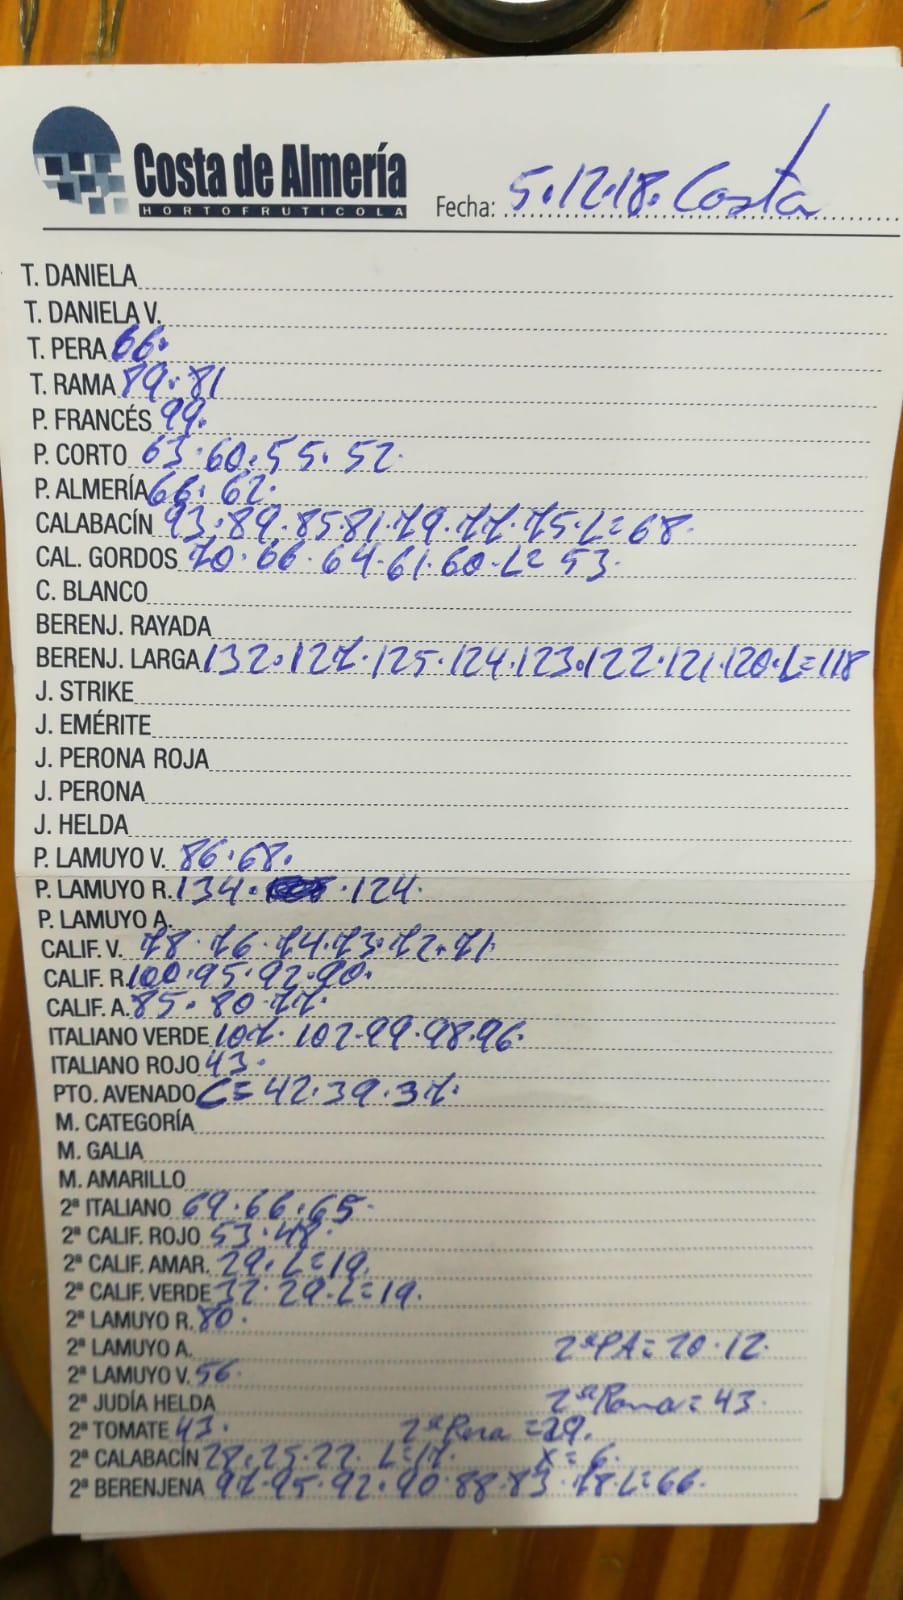 Costa de Almería
HORTOFRUTICOLA
Fecha: 5.12.18. Costa
T. DANIELA
T. DANIELA V.
T. PERA 66.
T. RAMA 89.81
P. FRANCÉS 99.
P. CORTO 63.60.55.52.
P. ALMERÍA 66.62.
CALABACÍN 93.89.85.81.79.77.75.L=68.
CAL. GORDOS 70.66.64.61.60.L=53.
C. BLANCO
BERENJ. RAYADA
BERENJ. LARGA 132.127.125.124.123.122.121.120.L=118
J. STRIKE
J. EMÉRITE
J. PERONA ROJA
J. PERONA
J. HELDA
P. LAMUYO V. 86.68.
P. LAMUYO R. 134. .124.
P. LAMUYO A.
CALIF. V. 78.76.74.73.72.71.
CALIF. R. 100.95.92.90.
CALIF. A. 85.80.77.
ITALIANO VERDE 107.102.99.98.96.
ITALIANO ROJO 43.
PTO. AVENADO C=42.39.37.
M. CATEGORÍA
M. GALIA
M. AMARILLO
2ª ITALIANO 69.66.65.
2ª CALIF. ROJO 53.48.
2ª CALIF. AMAR. 29.L=19.
2ª CALIF. VERDE 32.29.L=19.
2ª LAMUYO R. 80.
2ª LAMUYO A. 2ªPA=20.12.
2ª LAMUYO V. 56.
2ª JUDÍA HELDA 2ªRama=43.
2ª TOMATE 43. 2ªPera=29.
2ª CALABACÍN 28.25.22. L=17. X=6.
2ª BERENJENA 97.95.92.90.88.83.78.L=66.